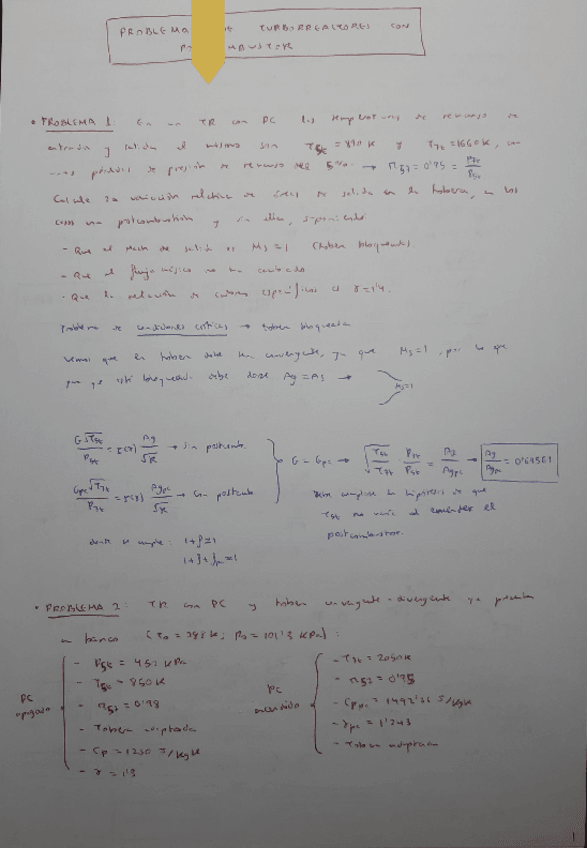 PROBLEMA DE TURBORREACTORES CON
• PROBLEMA 1: En un TR con PC las temperaturas de remanso de
entrada y salida al mismo son T5t = 810 K y T7t = 1660 K, con
unas pérdidas de presión de remanso del 5% → π57 = 0'95 = P7t/P5t
Calcule la variación relativa de área de salida en la tobera, en los
casos con postcombustión y sin ella, suponiendo
- Que el Mach de salida es Ms=1 (tobera bloqueada)
- Que el flujo másico no ha cambiado
- Que la relación de calores específicos es γ=1'4
Problema de condiciones críticas → tobera bloqueada
Vemos que la tobera debe ser convergente, ya que Ms=1, por lo que
que ya está bloqueada debe darse Ag = As → Ms=1
G√T5t/P5t = Γ(γ) Ag/√R → sin postcomb.
Gpc√T7t/P7t = Γ(γ) Agpc/√R → Con postcomb.
G = Gpc → √T5t/T7t P7t/P5t = Ag/Agpc → Ag/Agpc =
Debe cumplirse la hipótesis de que
T5t no varíe al encender el
postcombustor.
donde se cumple: 1+f≈1
1+f+fpc≈1
• PROBLEMA 2: TR con PC y tobera convergente-divergente se prueba
en banco (T0 = 288 K; P0 = 101'3 KPa):
PC apagado
- P5t = 452 KPa
- T5t = 850 K
- π57 = 0'98
- Tobera adaptada
- Cp = 1250 J/KgK
- γ = 1'3
PC encendido
- T7t = 2050 K
- π57 = 0'95
- Cppc = J/KgK
- γpc = 1'243
- Tobera adaptada
1